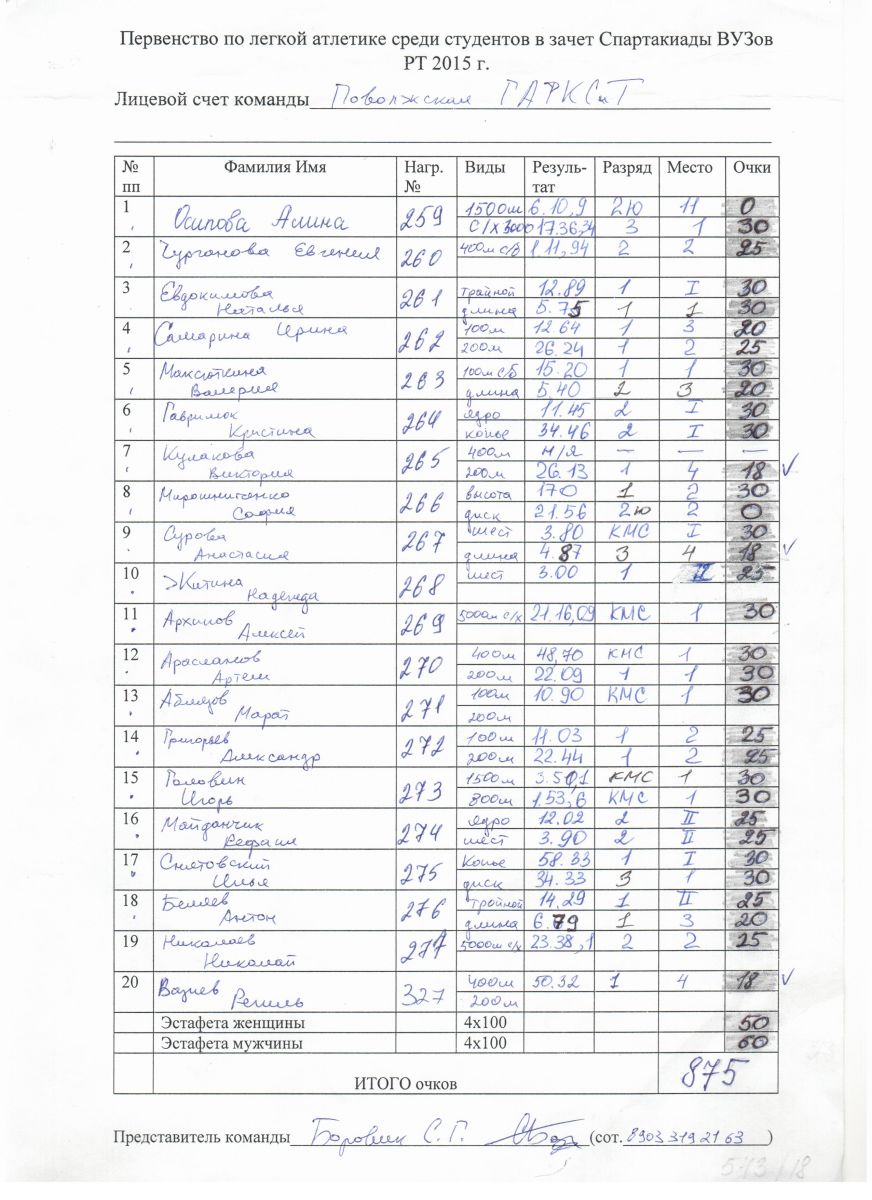 Первенство по легкой атлетике среди студентов в зачет Спартакиады ВУЗов
РТ 2015 г.
Лицевой счет команды Поволжская ГАФКСиТ
№ пп Фамилия Имя Нагр. № Виды Резуль-тат Разряд Место Очки
1 Осипова Алина 259 1500м 6.10,9 2ю 11 0
с/х 3000 17.36,34 3 1 30
2 Чурганова Евгения 260 400м с/б 1.11,94 2 2 25
3 Евдокимова Наталья 261 тройной 12.89 1 I 30
длина 5.75 1 1 30
4 Самарина Ирина 262 100м 12.64 1 3 20
200м 26.24 1 2 25
5 Максюткина Валерия 263 100м с/б 15.20 1 1 30
длина 5,40 2 3 20
6 Гаврилюк Кристина 264 ядро 11.45 2 I 30
копье 34.46 2 I 30
7 Кулакова Виктория 265 400м н/я — — —
200м 26.13 1 4 18 ✓
8 Мирошниченко София 266 высота 170 1 2 30
диск 21.56 2ю 2 0
9 Сурова Анастасия 267 шест 3.80 КМС I 30
длина 4.87 3 4 18 ✓
10 Житина Надежда 268 шест 3.00 1 II 25
11 Архипов Алексей 269 5000м с/х 21.16,09 КМС 1 30
12 Арасланов Артем 270 400м 48,70 КМС 1 30
200м 22.09 1 1 30
13 Аблязов Марат 271 100м 10.90 КМС 1 30
200м
14 Григорьев Александр 272 100м 11.03 1 2 25
200м 22.44 1 2 25
15 Головин Игорь 273 1500м 3.50,1 КМС 1 30
800м 1.53,6 КМС 1 30
16 Майданчик 274 ядро 12.02 2 II 25
шест 3.90 2 II 25
17 Снятовский Илья 275 Копье 58.33 1 I 30
диск 34.33 3 1 30
18 Беляев Антон 276 тройной 14,29 1 II 25
длина 6.79 1 3 20
19 Николаев Николай 277 5000м с/х 23.38,1 2 2 25
20 Вазиев 327 400м 50.32 1 4 18 ✓
200м
Эстафета женщины 4х100 50
Эстафета мужчины 4х100 60
ИТОГО очков 875
Представитель команды Боровик С.Г. (сот. 8903 319 21 63)